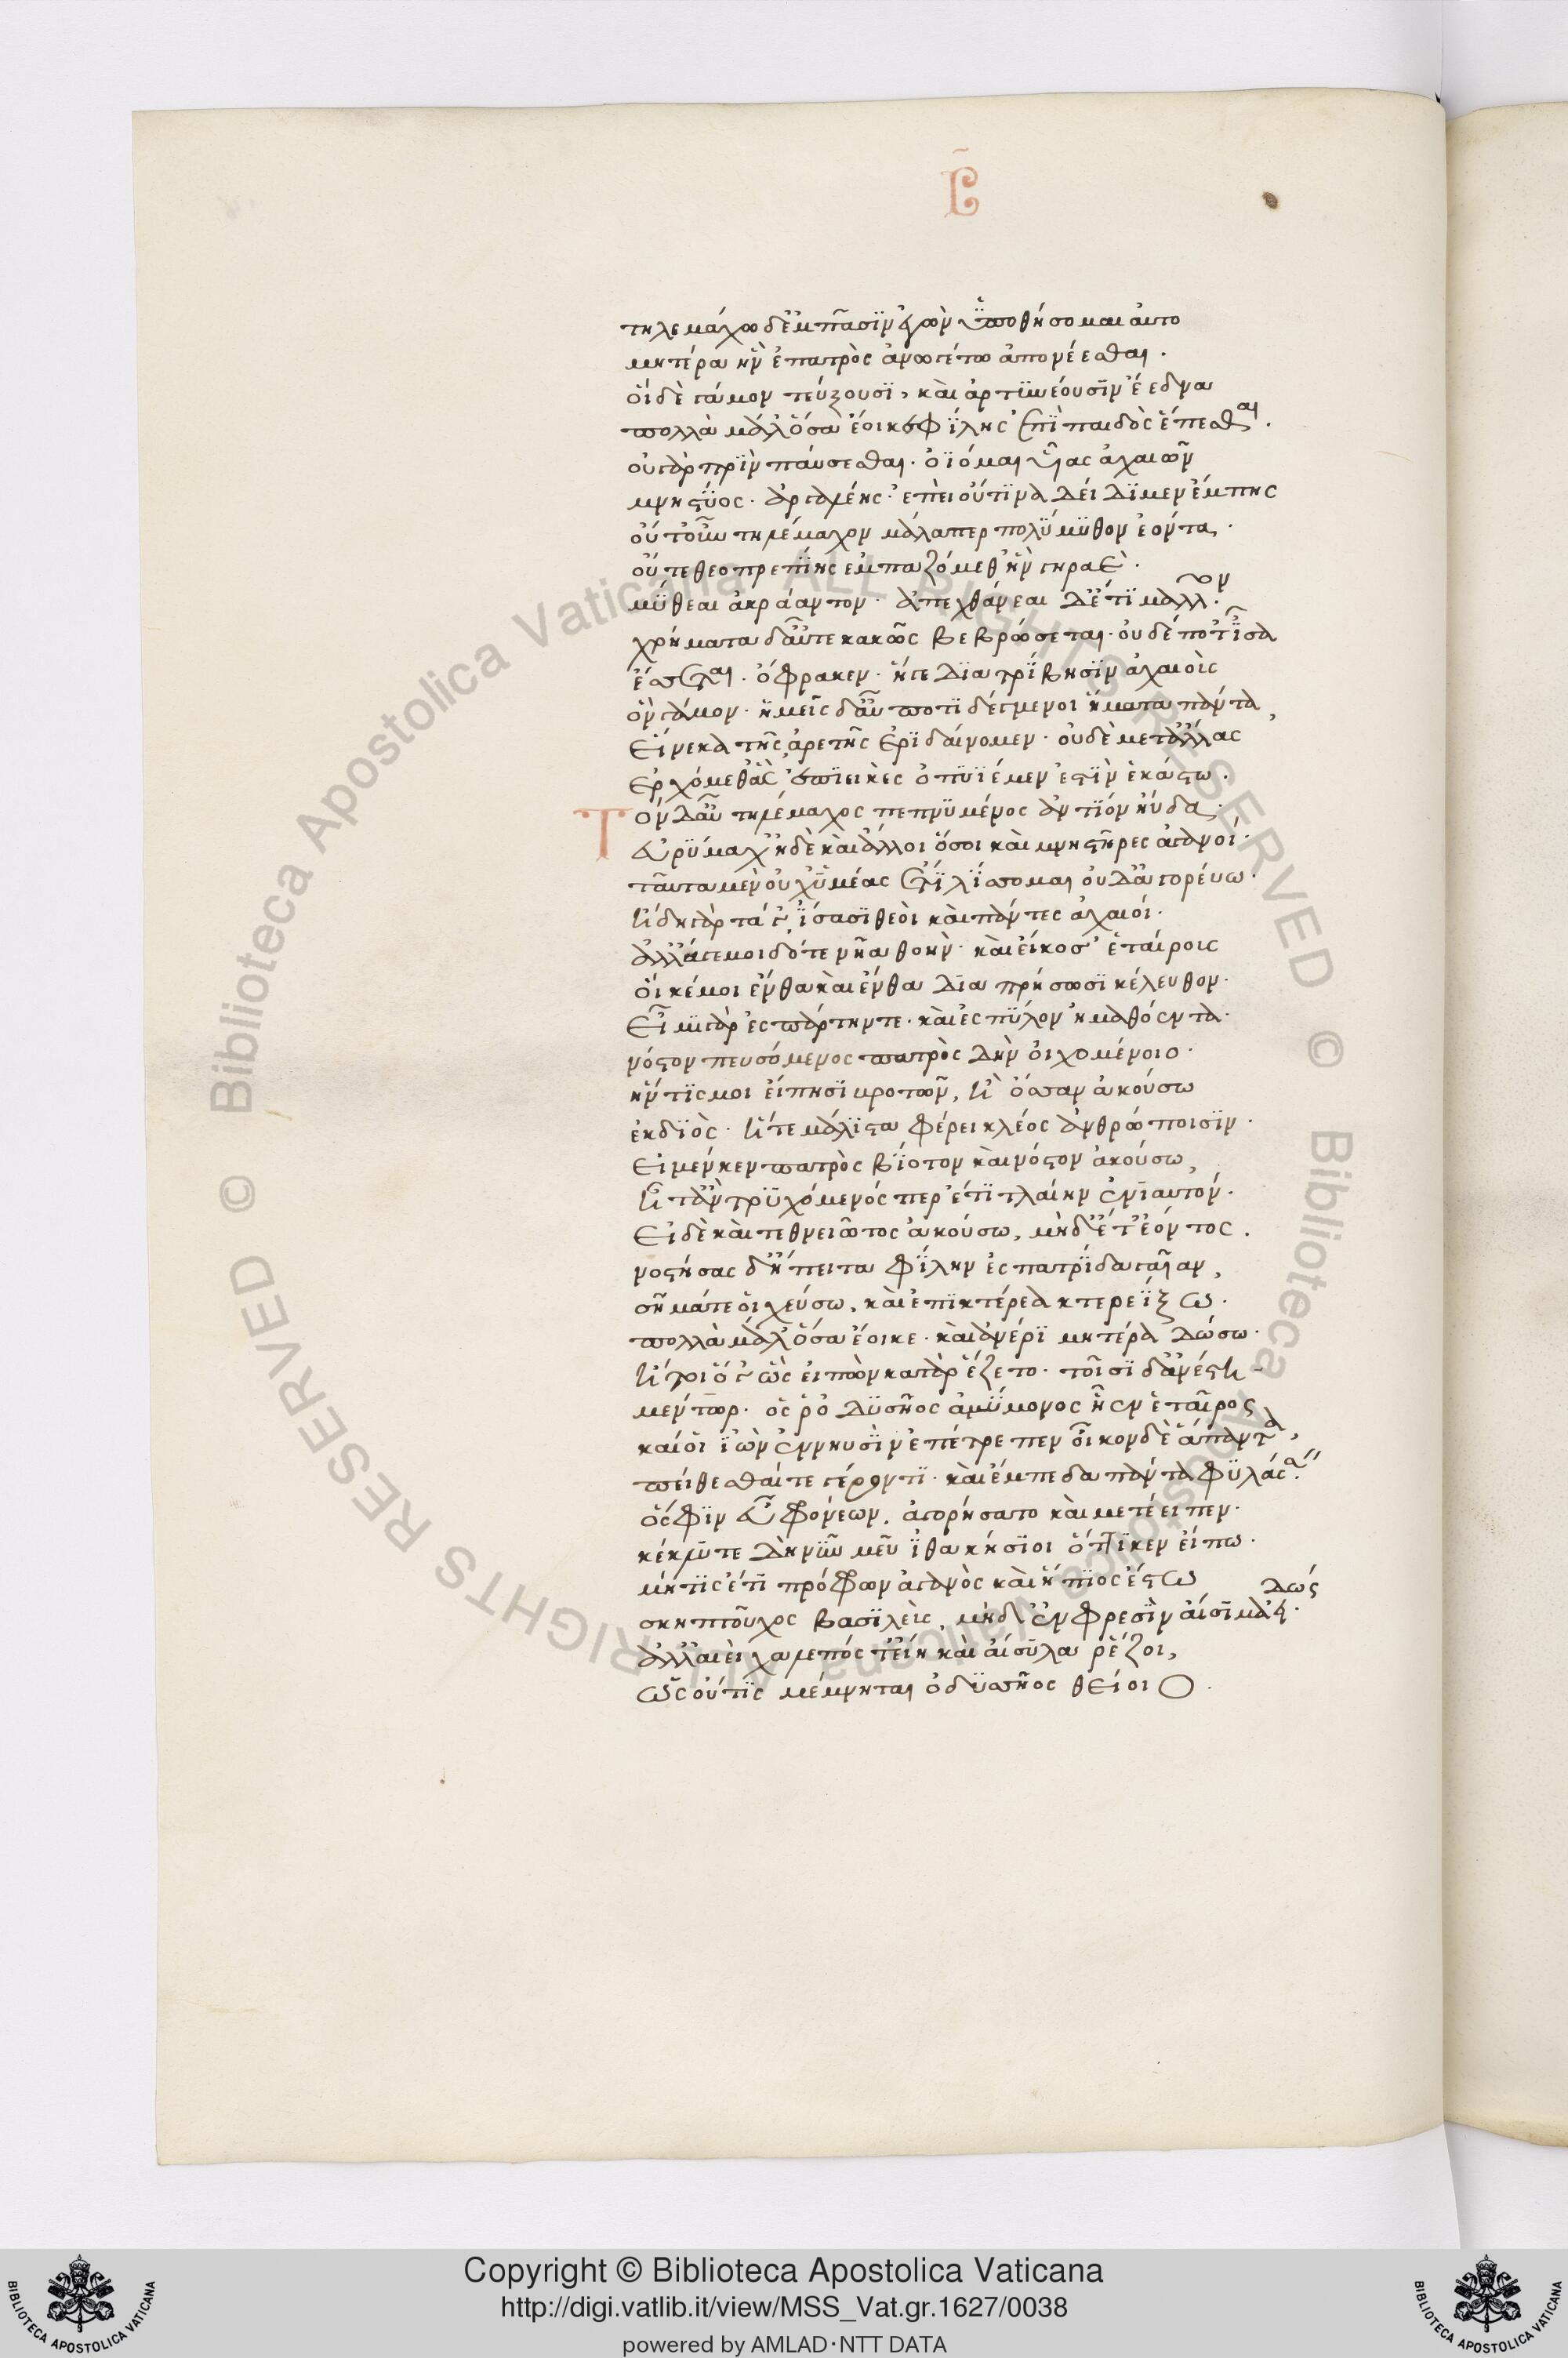 Β
τηλεμάχω δ' ἐν πᾶσιν ἐγὼν ὑποθήσομαι αὐτὸ
μητέρα ἣν ἐπατρὸς ἀνωγέτω ἀπονέεσθαι.
οἱ δὲ γάμον τεύξουσι, καὶ ἀρτινέουσιν ἔεδνα
πολλὰ μάλ' ὅσα ἔοικε φίλης ἐπὶ παιδὸς ἕπεσθαι.
οὐ γὰρ πρὶν παύσεσθαι. ὀΐομαι υἷας ἀχαιῶν
μνηστύος. ἀργαλέης. ἐπεὶ οὔτινα δείδιμεν ἔμπης
οὔτ' οὖν τηλέμαχον μάλα περ πολύμυθον ἐόντα.
οὔτε θεοπροπίης ἐμπαζόμεθ' ἣν γηραιὲ.
μύθεαι ἀκράαντον. ἀπεχθάνεαι δ' ἔτι μᾶλλον.
χρήματα δ' αὖτε κακῶς βεβρώσεται. οὐδέ ποτ' ἶσα
ἔσσεται. ὄφρα κεν. ἥγε διατρίβησιν ἀχαιοὶς
ὃν γάμον. ἡμεῖς δ' αὖ ποτιδέγμενοι ἤματα πάντα,
εἵνεκα τῆς ἀρετῆς ἐριδαίνομεν. οὐδὲ μετ' ἄλλας
ἐρχόμεθ' ἃς ἐπιεικὲς ὀπυιέμεν ἐστὶν ἑκάστω.
Τὸν δ' αὖ τηλέμαχος πεπνυμένος ἀντίον ηὔδα.
εὐρύμαχ' ἠδὲ καὶ ἄλλοι ὅσοι καὶ μνηστῆρες ἀγαυοί.
ταῦτα μὲν οὐχ ὑμέας ἔτι λίσσομαι οὐδ' ἀγορεύω.
ἤδη γὰρ τάγ' ἴσασι θεοὶ καὶ πάντες ἀχαιοί.
ἀλλ' ἄγε μοι δότε νῆα θοὴν. καὶ εἴκοσ' ἑταίροις
οἵ κέ μοι ἔνθα καὶ ἔνθα διαπρήσσωσι κέλευθον.
εἶμι γὰρ ἐς σπάρτην τε. καὶ ἐς πύλον ἠμαθόεντα.
νόστον πευσόμενος πατρὸς δὴν οἰχομένοιο.
ἤν τίς μοι εἴπησι βροτῶν, ἢ ὄσσαν ἀκούσω
ἐκ διὸς. ἥ τε μάλιστα φέρει κλέος ἀνθρώποισιν.
εἰ μέν κεν πατρὸς βίοτον καὶ νόστον ἀκούσω,
ἦ τ' ἂν τρυχόμενός περ ἔτι τλαίην ἐνιαυτόν.
εἰ δὲ καὶ τεθνειῶτος ἀκούσω, μὴδ' ἔτ' ἐόντος.
νοστήσας δ' ἤπειτα φίλην ἐς πατρίδα γαῖαν,
σῆμά τέ οἱ χεύσω, καὶ ἐπὶ κτέρεα κτερεΐξω.
πολλὰ μάλ' ὅσα ἔοικε. καὶ ἀνέρι μητέρα δώσω.
ἤτοι ὅ γ' ὣς εἰπὼν κατ' ἂρ ἕζετο. τοῖσι δ' ἀνέστη
μέντωρ. ὅς ῥ' ὀδυσῆος ἀμύμονος ἦεν ἑταῖρος
καί οἱ ἰὼν ἐν νηυσὶν ἐπέτρεπεν οἶκον δὲ ἅπαντα,
πείθεσθαί τε γέροντι. καὶ ἔμπεδα πάντα φυλάσσειν.
ὅ σφιν εὖ φρονέων. ἀγορήσατο καὶ μετέειπεν.
κέκλυτε δὴ νῦν μεῦ ἰθακήσιοι ὅττι κεν εἴπω.
μήτις ἔτι πρόφρων ἀγανὸς καὶ ἤπιος ἔστω
σκηπτοῦχος βασιλεὺς, μὴδὲ φρεσὶν αἴσιμα εἰδώς.
ἀλλ' αἰεὶ χαλεπός τ' εἴη καὶ αἴσυλα ῥέζοι,
ὡς οὔτις μέμνηται ὀδυσσῆος θείοιο.
© Biblioteca Apostolica Vaticana ALL RIGHTS RESERVED © Biblioteca Apostolica Vaticana ALL RIGHTS RESERVED
Copyright © Biblioteca Apostolica Vaticana
http://digi.vatlib.it/view/MSS_Vat.gr.1627/0038
powered by AMLAD·NTT DATA
BIBLIOTECA APOSTOLICA VATICANA
BIBLIOTECA APOSTOLICA VATICANA